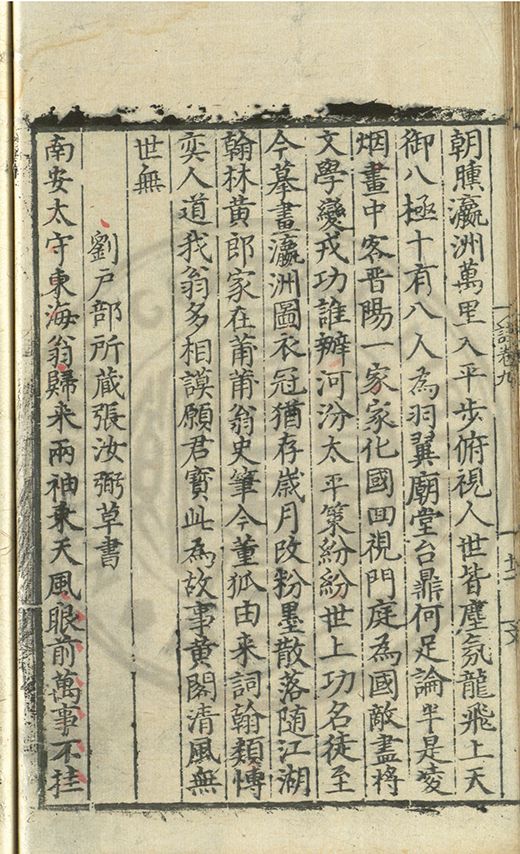 朝醺瀛洲萬里入平步俯視人世皆塵氛龍飛上天
御八極十有八人為羽翼廟堂台鼎何足論半是凌
烟畫中客晋陽一家家化國回視門庭為國敵盡將
文學變戎功誰辦河汾太平策紛紛世上功名徒至
今摹畫瀛洲圖衣冠猶存歲月改粉墨散落随江湖
翰林黃郎家在莆莆翁史筆今董狐由来詞翰類慱
奕人道我翁多相謨願君寶此為故事黄閣清風無
世無
劉户部所蔵張汝弼草書
南安太守東海翁歸来兩袖乗天風眼前萬事不挂
詩卷九